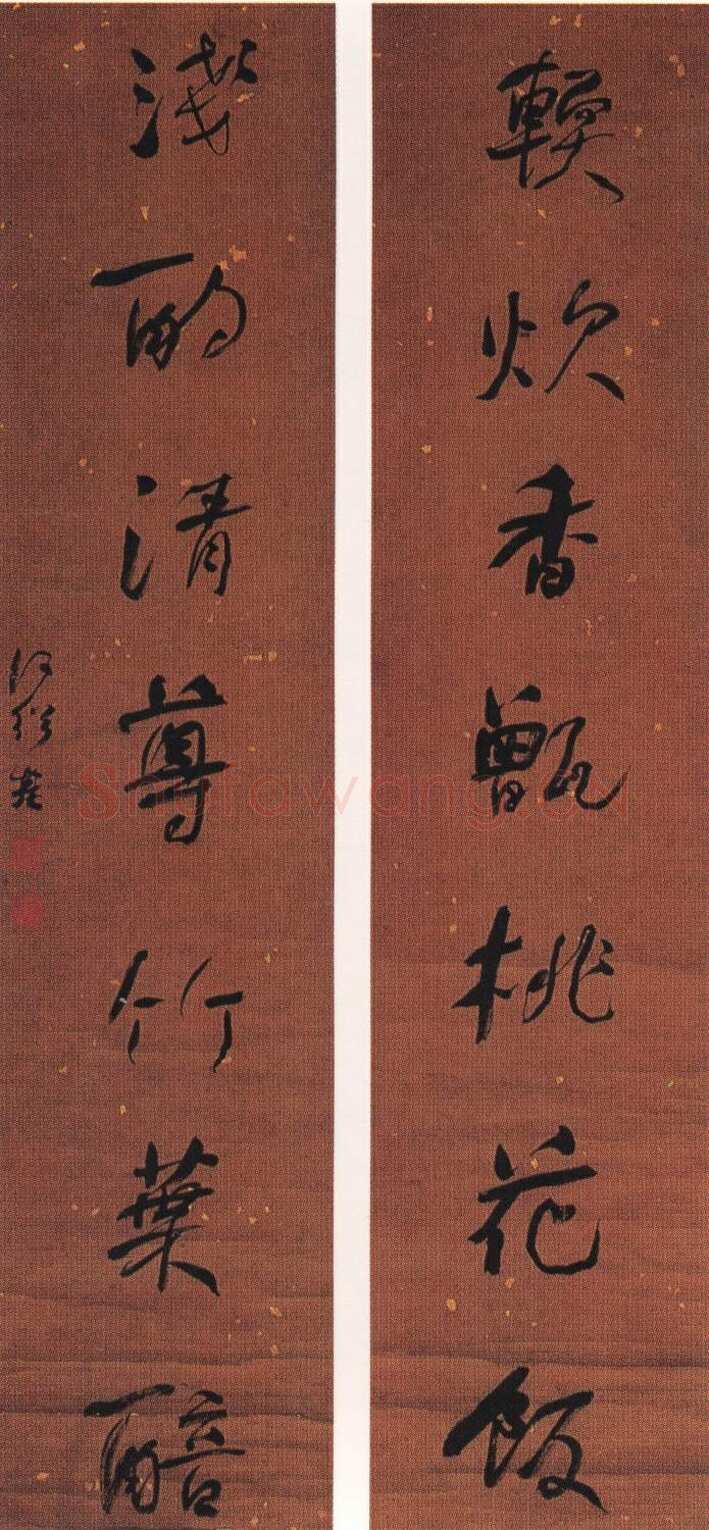 輭炊香甑桃花飯
淺酌清尊竹葉醅